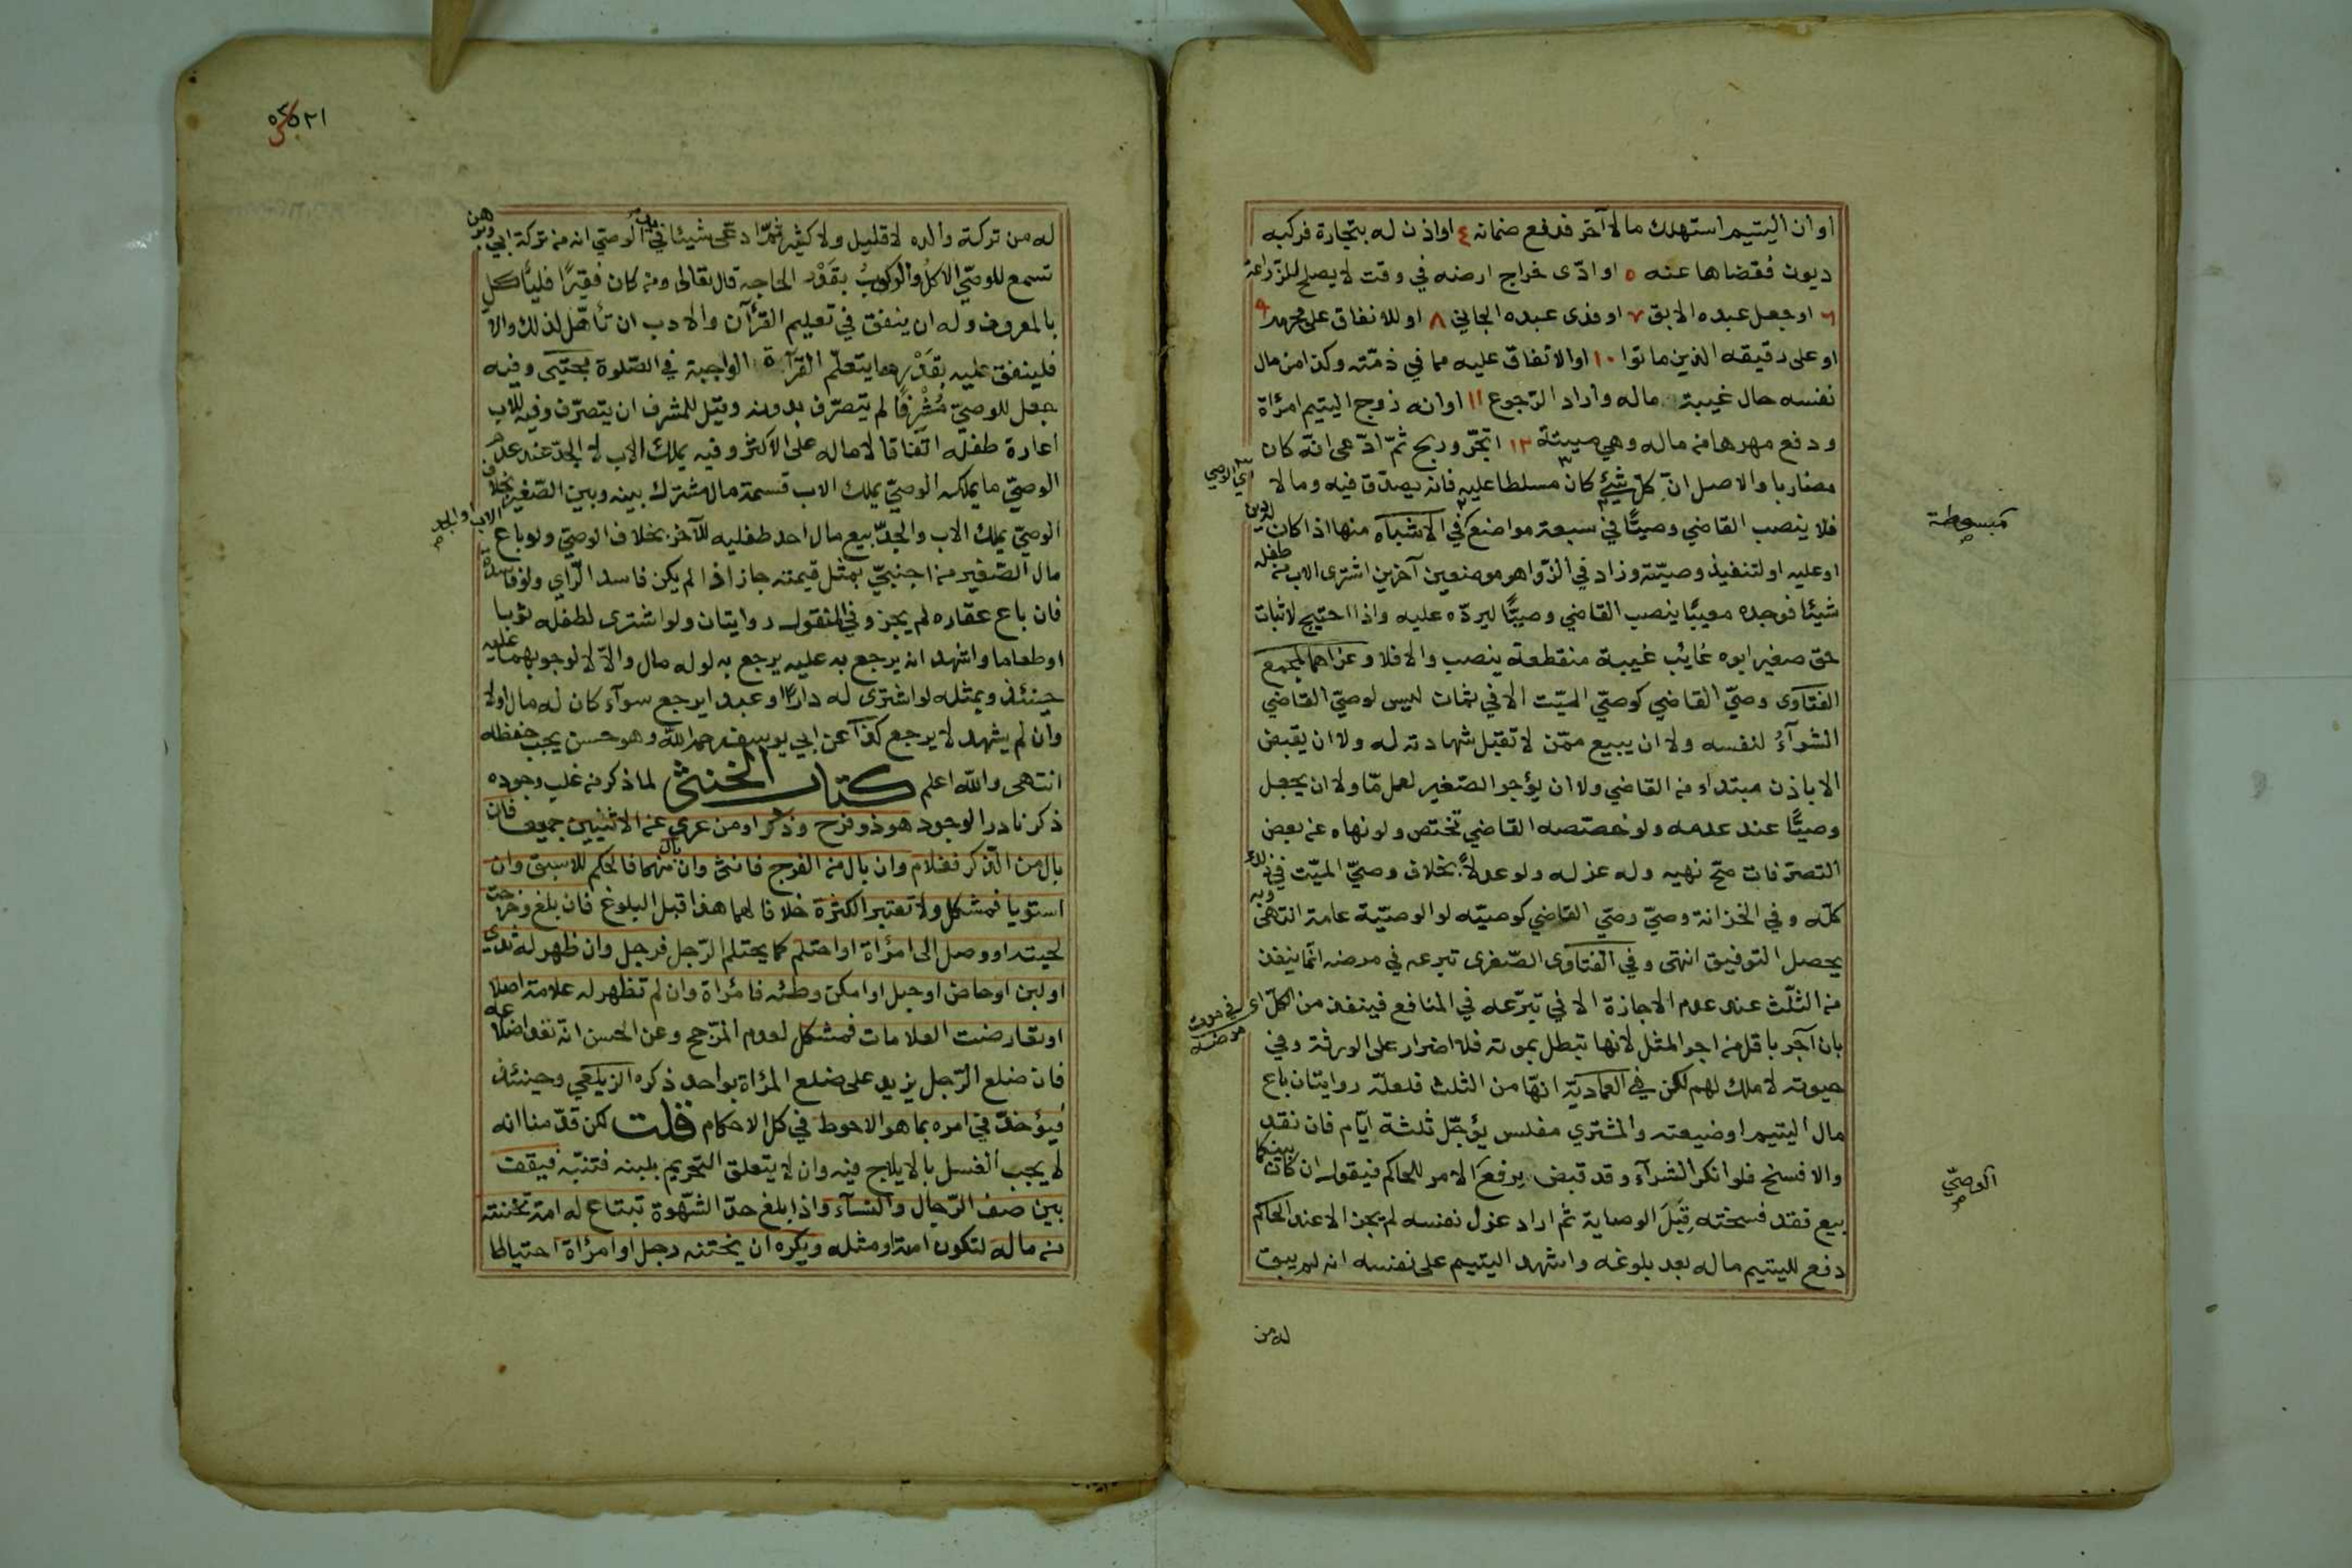 او ان اليتيم استهلك مالا آخر فدفع ضمانه ٤ او اذن له بتجارة فركبه
ديون فقضاها عنه ٥ او ادّى خراج ارضه في وقت لا يصلح للزراعة
٦ او جعل عبده الابق ٧ او فدى عبده الجاني ٨ او للانفاق على محرمه ٩
او على رقيقه الذين ماتوا ١٠ او الانفاق عليه مما في ذمّته وكذا من مال
نفسه حال غيبة ماله واراد الرّجوع ١١ او انه زوج اليتيم امرأة
ودفع مهرها من ماله وهي ميتة ١٢ اتّجر وربح ثمّ ادّعى انّه كان
مضاربا والاصل انّ كلّ شيئ كان مسلطا عليه فانه يصدّق فيه وما لا
اي الوصي
فلا ينصب القاضي وصيّا في سبعة مواضع في الاشباه منها اذا كان
مبسوطة
او عليه او لتنفيذ وصيّته وزاد في الزّواهر موضعين آخرين اشترى الاب من طفله
شيئا فوجده معيبا ينصب القاضي وصيّا ليردّه عليه واذا احتيج لاثبات
حق صغير ابوه غايب غيبة منقطعة ينصب والا فلا وعزاهما لمجمع
الفتاوى وصيّ القاضي كوصيّ الميّت الا في ثمان ليس لوصيّ القاضي
الشرآء لنفسه ولا ان يبيع ممّن لا تقبل شهادته له ولا ان يقبض
الا باذن مبتداء من القاضي ولا ان يؤجر الصّغير لعمل مّا ولا ان يجعل
وصيّا عند عدمه ولو خصّصه القاضي تخصّص ولو نهاه عن بعض
التصرّفات صحّ نهيه وله عزله ولو عدلا بخلاف وصيّ الميّت في ذلك
كلّه وفي الخزانة وصيّ وصيّ القاضي كوصيّه لو الوصيّة عامة انتهى وبه
يحصل التوفيق انتهى وفي الفتاوى الصّغرى تبرعه في مرضه انّما ينفذ
من الثلث عند عدم الاجازة الا في تبرّعه في المنافع فينفذ من الكلّ اى في موت مرضه
بان آجر باقل من اجر المثل لانها تبطل بموته فلا اضرار على الورثة وفي
حيوته لا ملك لهم لكن في العماديّة انهّا من الثلث فلعلّه روايتان باع
مال اليتيم او ضيعته والمشتري مفلس يؤجّل ثلثة ايّام فان نقد
والا فسخ فلو انكر الشرآء وقد قبض يرفع الامر للحاكم فيقول ان كان بينكما
الوصيّ
بيع فقد فسخته قبل الوصاية ثم اراد عزل نفسه لم يجز الا عند الحاكم
دفع لليتيم ماله بعد بلوغه واشهد اليتيم على نفسه انه لم يبق
له من
له من تركة والده لا قليل ولا كثير ثمّ ادّعى شيئا في يد الوصيّ انه من تركة ابي وبرهن
تسمع للوصيّ الاكل والركوب بقدر الحاجه قال تعالى ومن كان فقيرًا فليأكل
بالمعروف وله ان ينفق في تعليم القرآن والادب ان تأهّل لذلك والا
فلينفق عليه بقدر ما يتعلّم القرآة الواجبة في الصّلوة مجتبى وفيه
جعل للوصيّ مشرفا لم يتصرّف بدونه وقيل للمشرف ان يتصرّف وفيه للاب
اعارة طفله اتّفاقا لا ماله على الاكثر وفيه يملك الاب لا الجدّ عند عدم
الوصيّ ما يملكه الوصيّ يملك الاب قسمة مال مشترك بينه وبين الصّغير بخلاف
الوصيّ يملك الاب والجدّ بيع مال احد طفليه للآخر بخلاف الوصيّ ولو باع
الاب والجد
مال الصّغير من اجنبيّ بمثل قيمته جاز اذا لم يكن فاسد الرّاي ولو فاسده
فان باع عقاره لم يجز وفي المنقول روايتان ولو اشترى لطفله ثوبا
او طعاما واشهد انه يرجع به عليه يرجع به لو له مال والا لا لوجوبهما عليه
حينئذ وبمثله لو اشترى له دارا او عبدا يرجع سوآء كان له مال اولا
وان لم يشهد لا يرجع كذا عن ابي يوسف رحمه اللّه وهو حسن يجب حفظه
انتهى واللّه اعلم كتاب الخنثى لما ذكر من غلب وجوده
ذكر نادر الوجود هو ذو فرج وذكر او من عري عن الاثنيين جميعا فان
بال من الذّكر فغلام وان بال من الفرج فانثى وان بال منهما فالحكم للاسبق وان
استويا فمشكل ولا تعتبر الكثرة خلافا لهما هذا قبل البلوغ فان بلغ وخرجت
لحيته او وصل الى امرأة او احتلم كما يحتلم الرّجل فرجل وان ظهر له ثدى
او لبن او حاض او حبل او امكن وطئه فامرأة وان لم تظهر له علامة اصلا
او تعارضت العلامات فمشكل لعدم المرّجح وعن الحسن انّه تعد اضلاعه
فان ضلع الرّجل يزيد على ضلع المرأة بواحد ذكره الزيلعي وحينئذ
فيؤخذ في امره بما هو الاحوط في كل الاحكام قلت لكن قدّمنا انه
لا يجب الغسل بالايلاج فيه وان لا يتعلق التحريم بلبنه فتنبّه فيقف
بين صف الرّجال والنسآء واذا بلغ حدّ الشّهوة تبتاع له امة تختنه
من ماله لتكون امته او مثله ويكره ان يختنه رجل او امرأة احتياطا